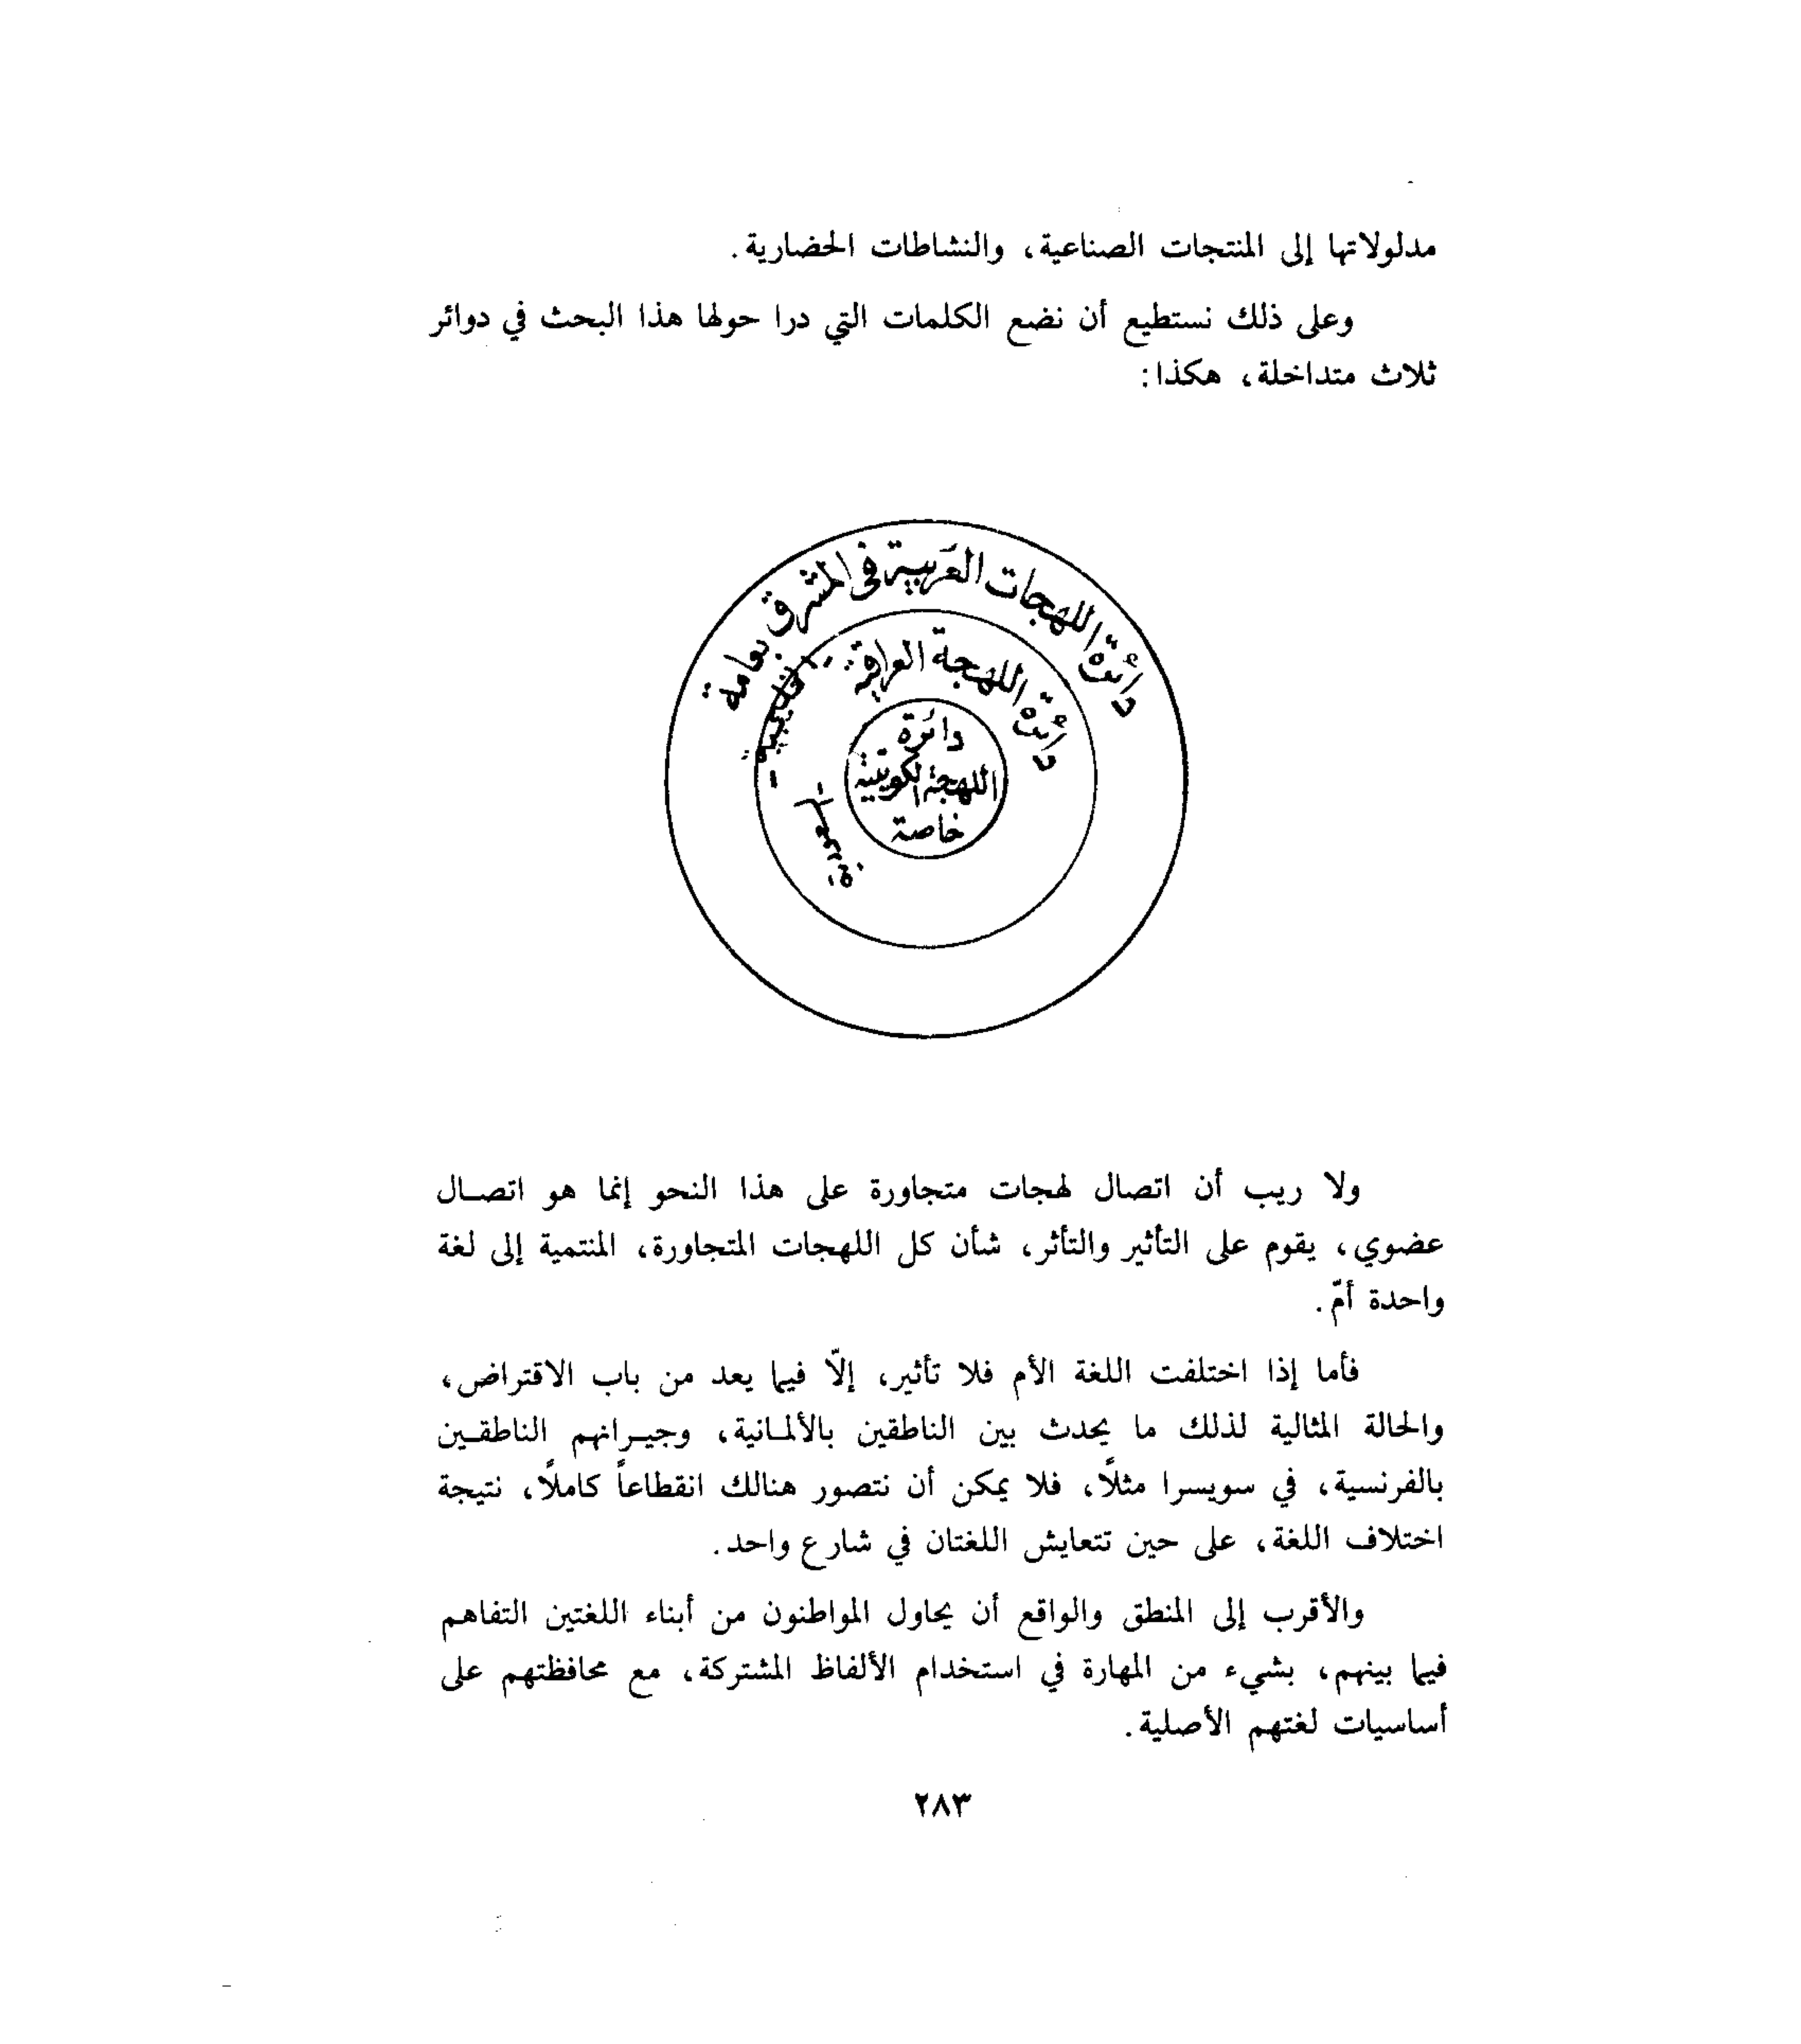 مدلولاتها إلى المنتجات الصناعية، والنشاطات الحضارية.
وعلى ذلك نستطيع أن نضع الكلمات التي درا حولها هذا البحث في دوائر
ثلاث متداخلة، هكذا:
دائرة اللهجات العربية في المشرق بعامة
دائرة اللهجة العراقية - الخليجية -
- السعودية
دائرة
اللهجة الكويتية
خاصة
ولا ريب أن اتصال لهجات متجاورة على هذا النحو إنما هو اتصـال
عضوي، يقوم على التأثير والتأثر، شأن كل اللهجات المتجاورة، المنتمية إلى لغة
واحدة أمّ.
فأما إذا اختلفت اللغة الأم فلا تأثير، إلّا فيما يعد من باب الاقتراض،
والحالة المثالية لذلك ما يحدث بين الناطقين بالألمـانية، وجيـرانهم الناطقـين
بالفرنسية، في سويسرا مثلًا، فلا يمكن أن نتصور هنالك انقطاعاً كاملًا، نتيجة
اختلاف اللغة، على حين تتعايش اللغتان في شارع واحد.
والأقرب إلى المنطق والواقع أن يحاول المواطنون من أبناء اللغتين التفاهم
فيما بينهم، بشيء من المهارة في استخدام الألفاظ المشتركة، مع محافظتهم على
أساسيات لغتهم الأصلية.
٢٨٣